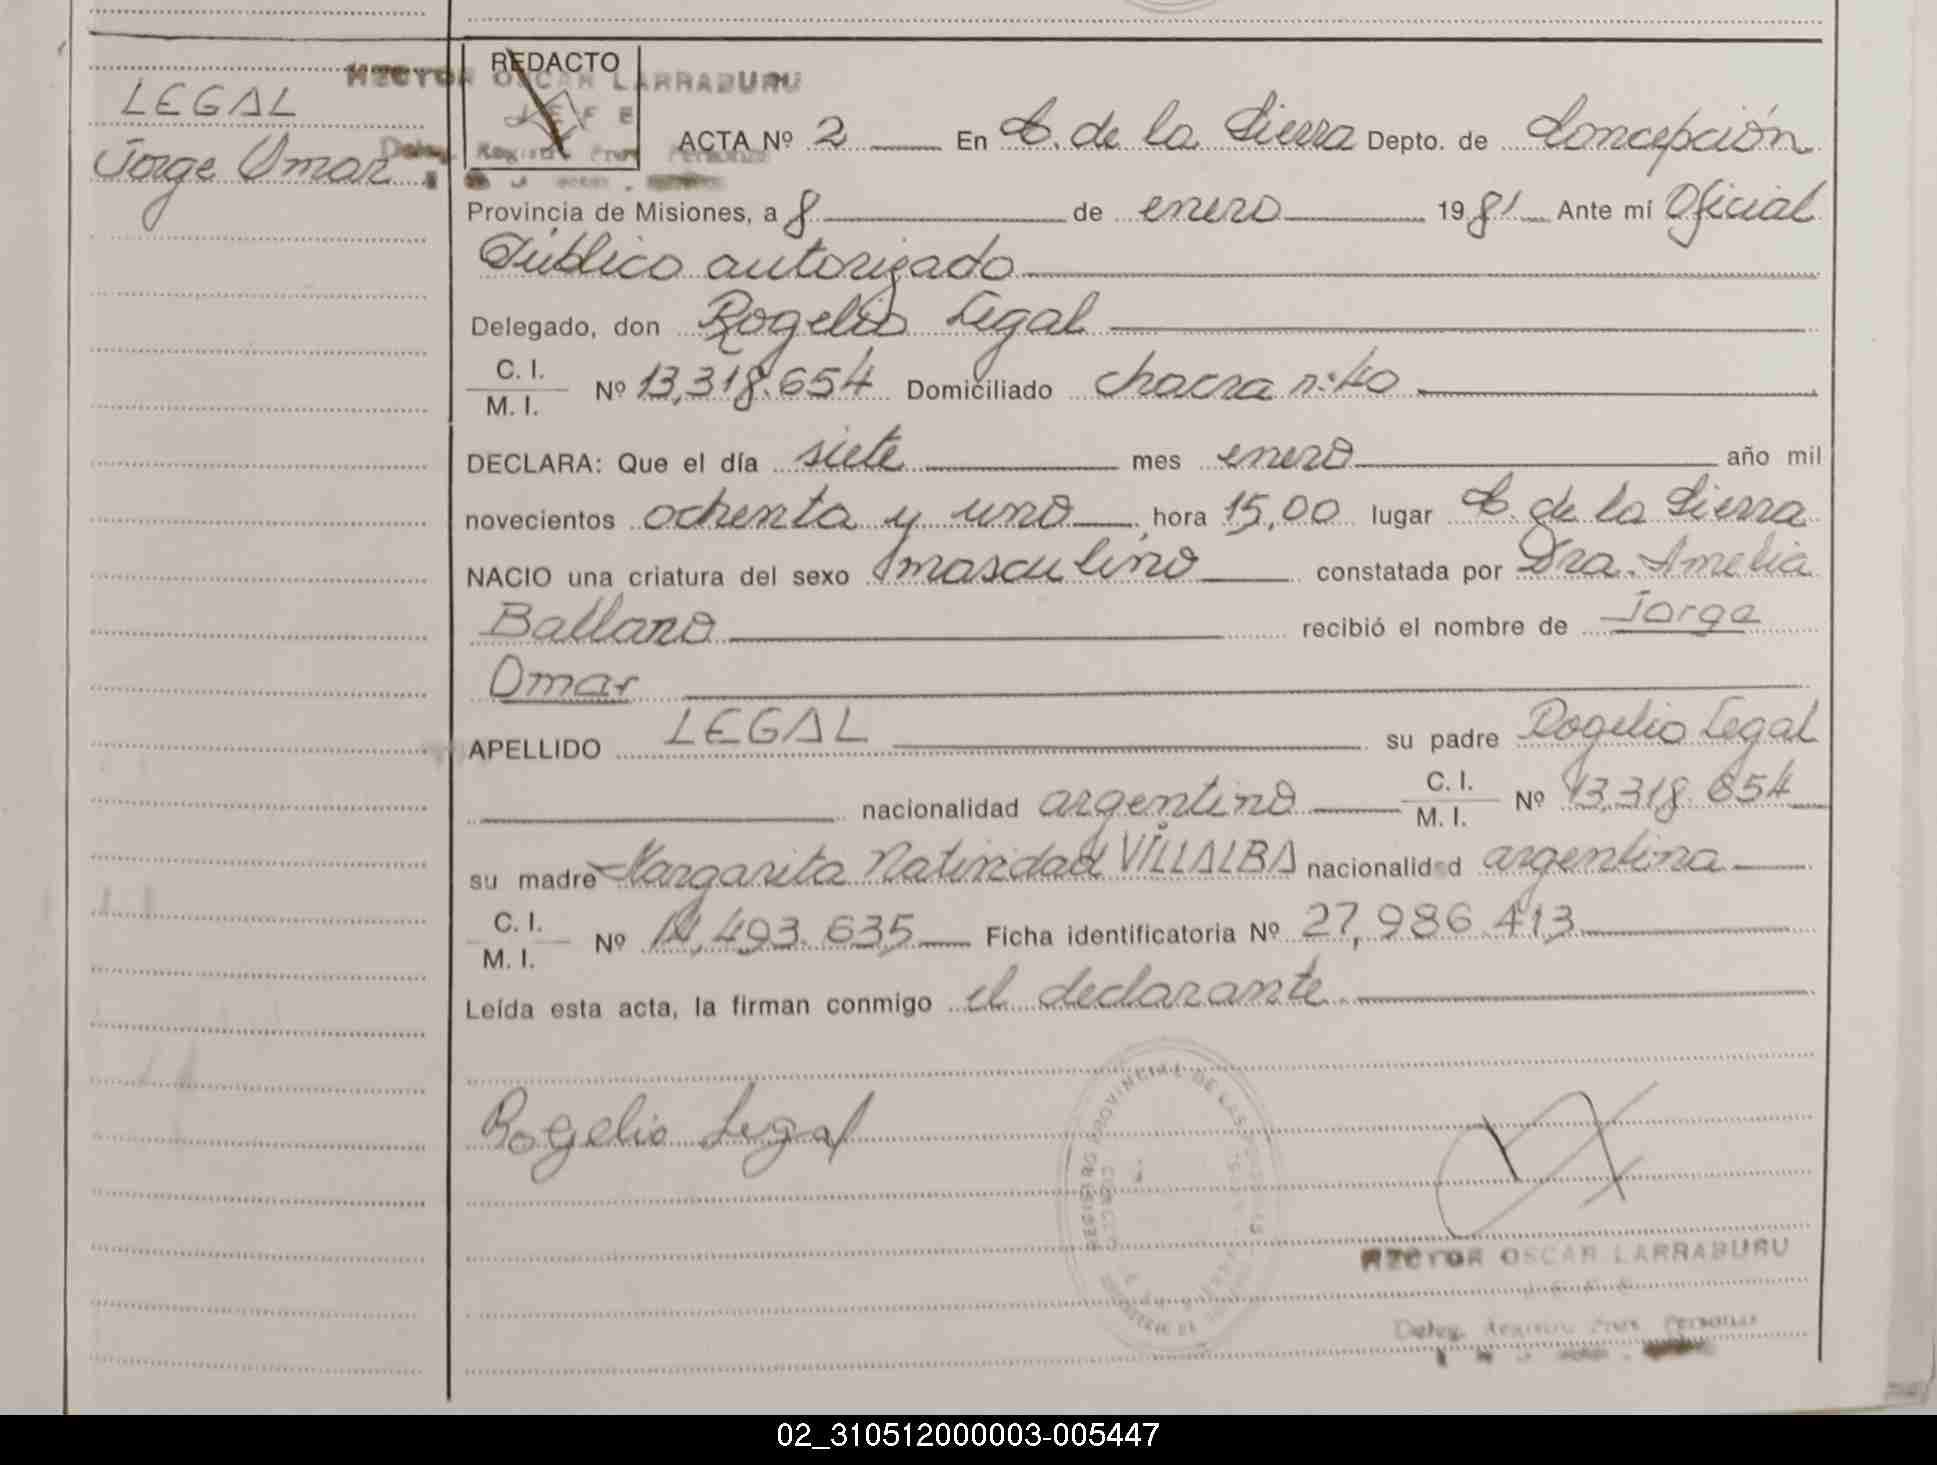 LEGAL
Jorge Omar
REDACTO
HECTOR OSCAR LARRABURU
JEFE
ACTA Nº 2 En C. de la Sierra Depto. de Concepción
Provincia de Misiones, a 8 de enero 1981 Ante mí Oficial
Público autorizado
Delegado, don Rogelio Legal
C. I.
M. I. Nº 13,318.654 Domiciliado chacra n: 40
DECLARA: Que el día siete mes enero año mil
novecientos ochenta y uno, hora 15,00 lugar C. de la Sierra
NACIO una criatura del sexo masculino constatada por Dra. Amelia
Ballano recibió el nombre de Jorge
Omar
APELLIDO LEGAL su padre Rogelio Legal
nacionalidad argentino C. I. M. I. Nº 13,318.654
su madre Margarita Natividad VILLALBA nacionalidad argentina
C. I.
M. I. Nº 14,493.635 Ficha identificatoria Nº 27,986.413
Leída esta acta, la firman conmigo el declarante
Rogelio Legal
REGISTRO PROVINCIAL DE LAS PERSONAS
HECTOR OSCAR LARRABURU
JEFE
Deleg. Registro Prov. Personas
02_310512000003-005447